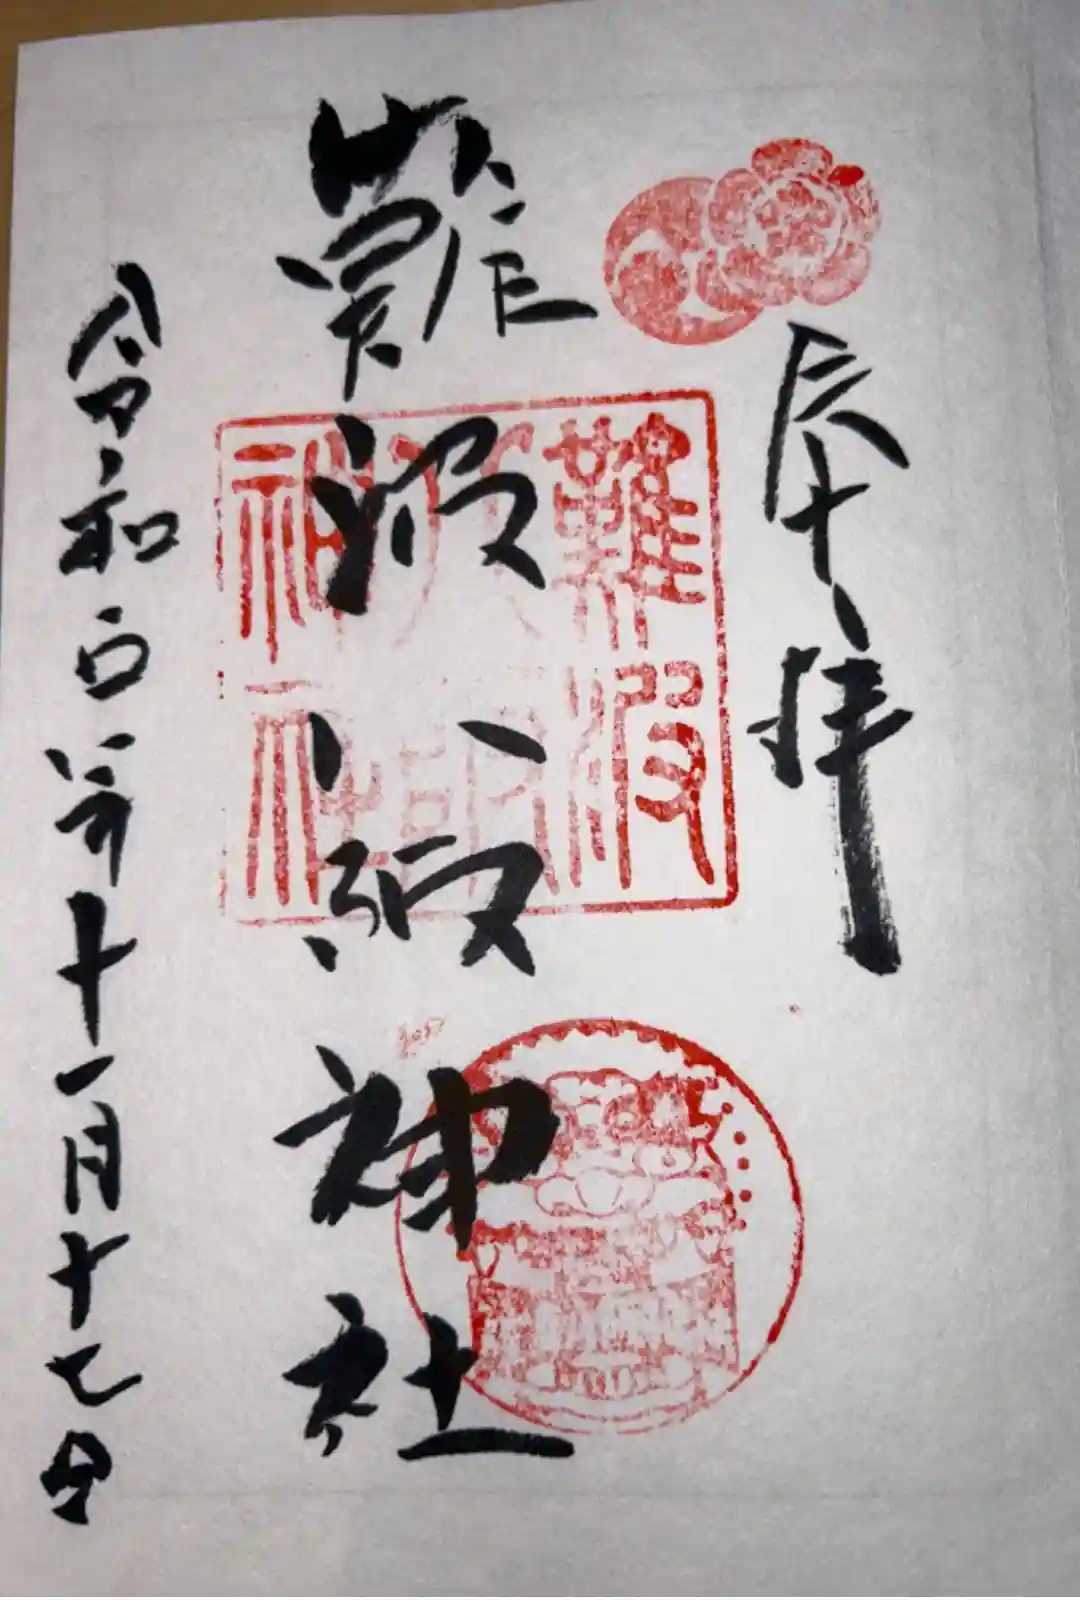 奉拝
難波八阪神社
令和四年十一月十七日
難波
八阪
神社